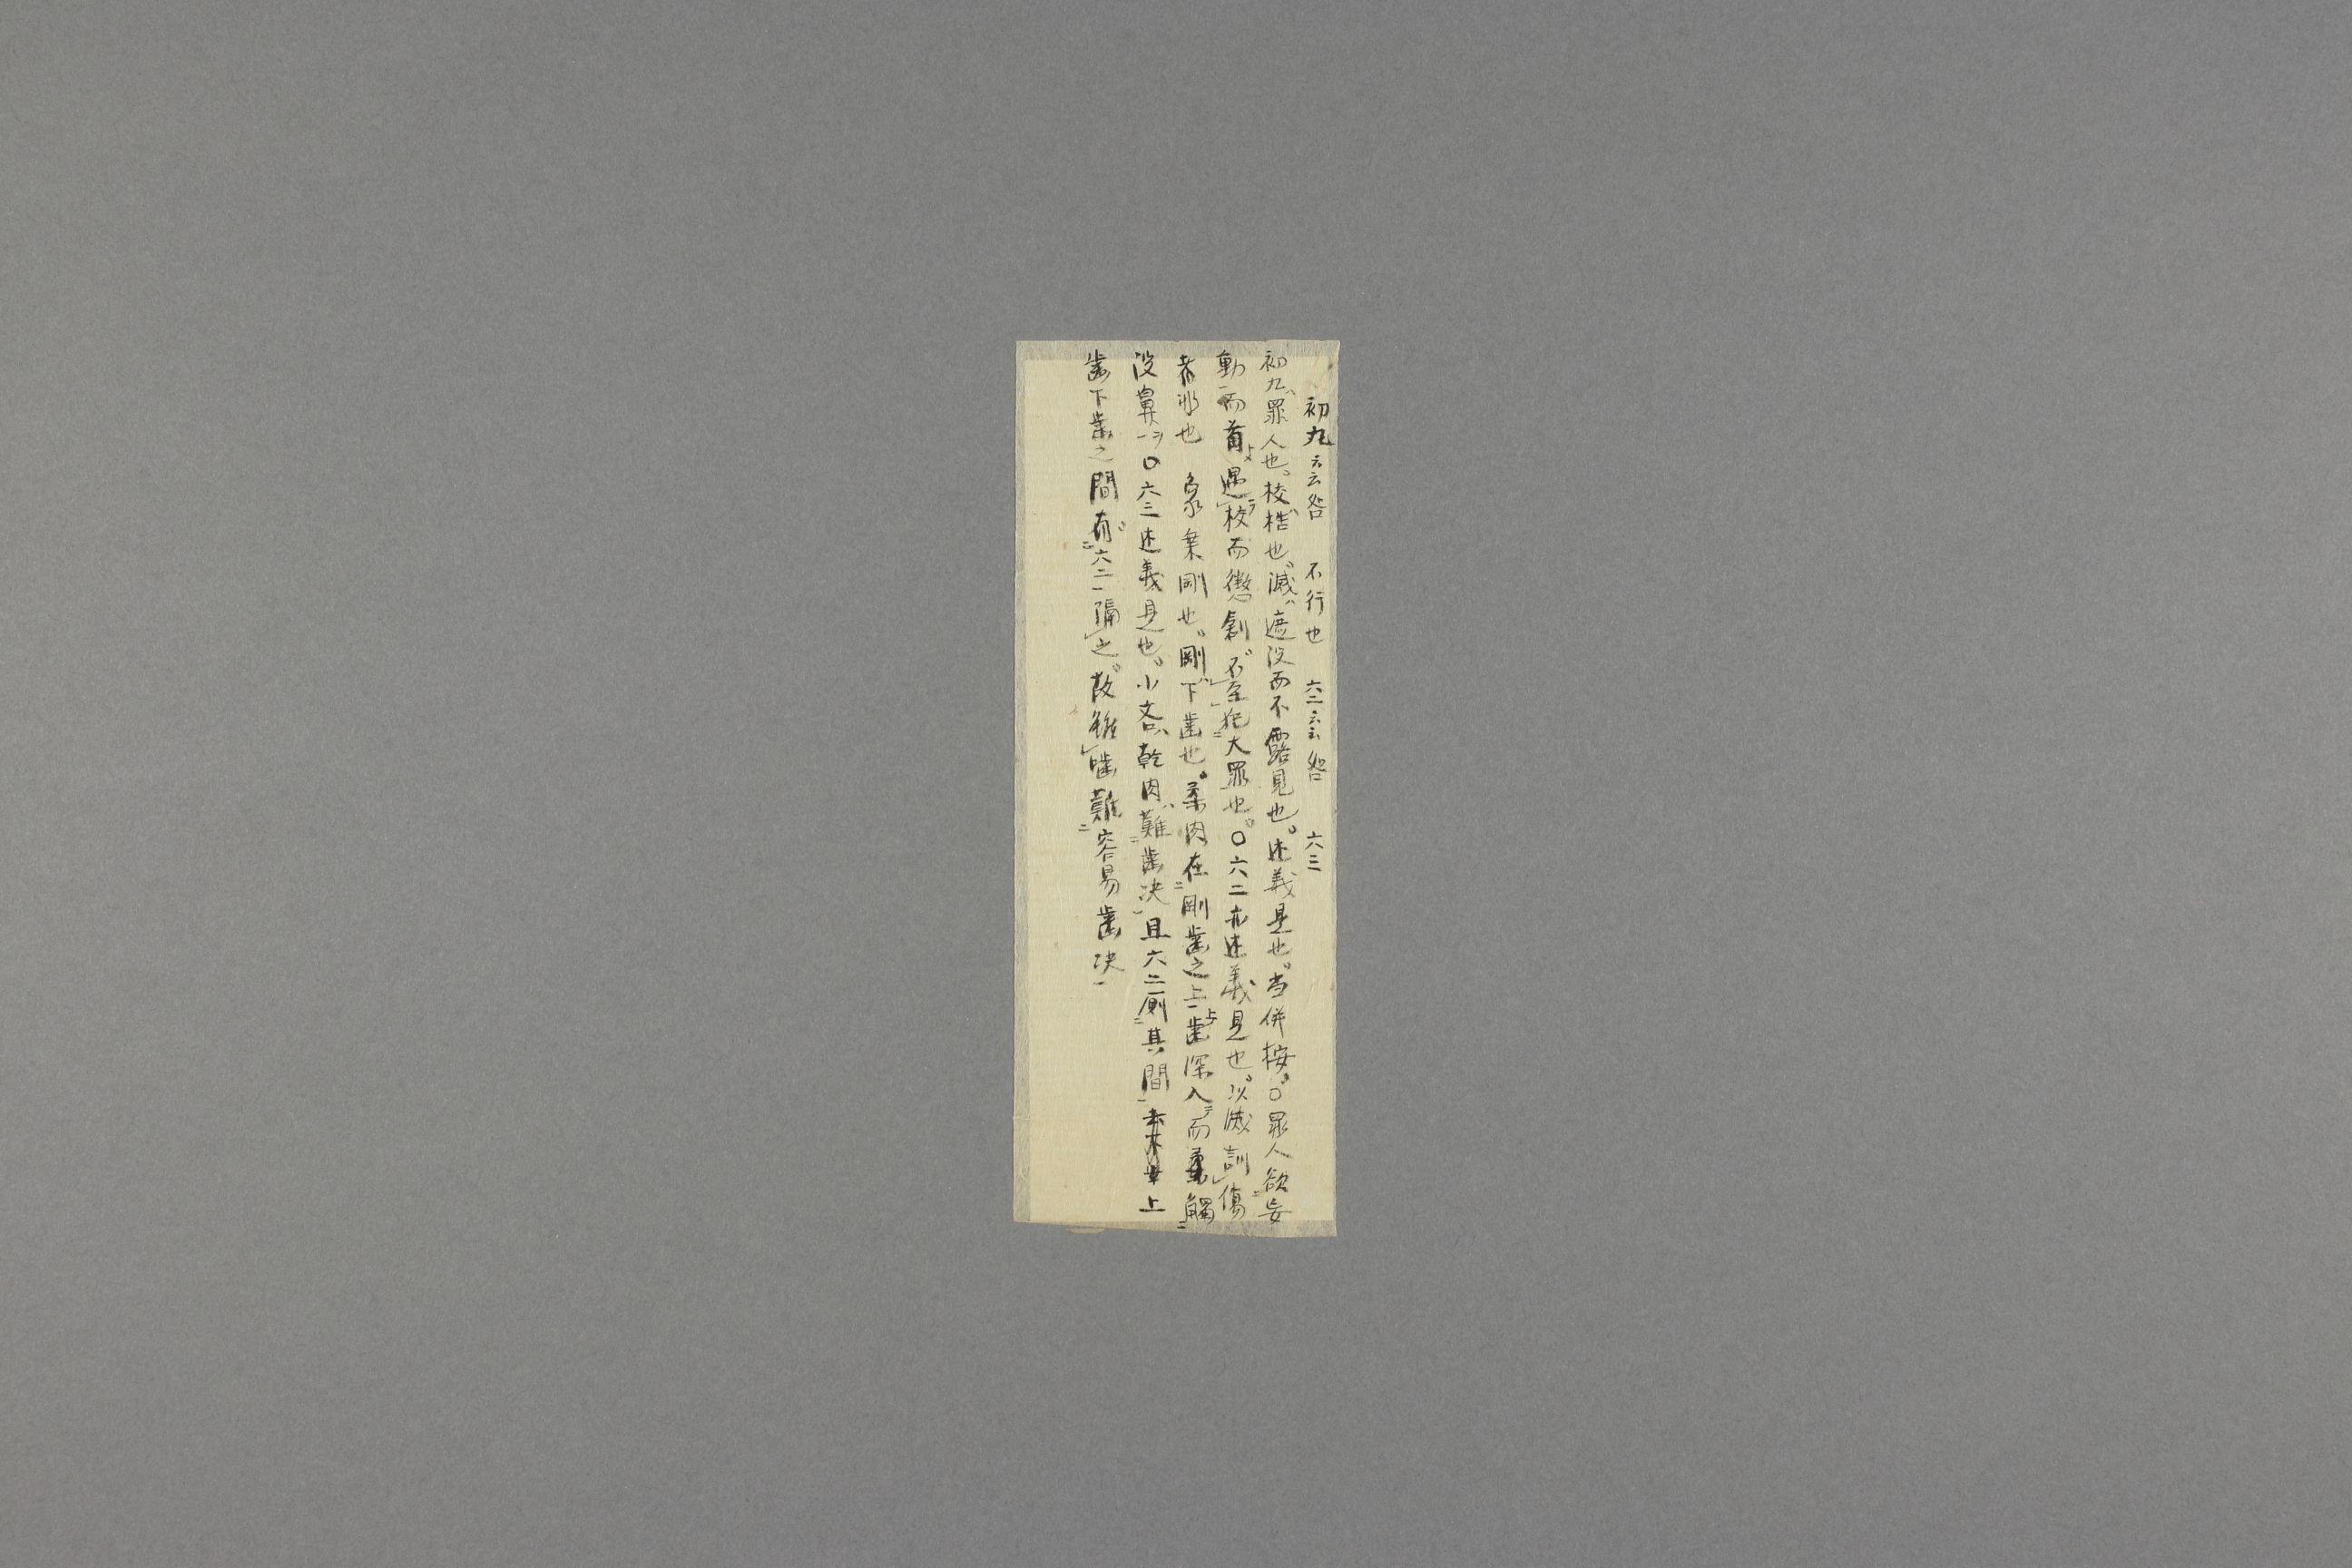 初九云云咎　不行也　六二云云咎　六三
初九罪人也校梏也滅遮没而不露見也述義是也当併按○罪人欲妄
動而首遇校而懲創不至犯大罪也○六二亦述義是也以滅訓傷
者非也　象乗剛也剛下歯也柔肉在剛歯之上歯深入而鼻觸
没鼻○六三述義是也小吝乾肉難歯决且六二厠其間上
歯下歯之間有六二隔之故雖噬難容易歯决